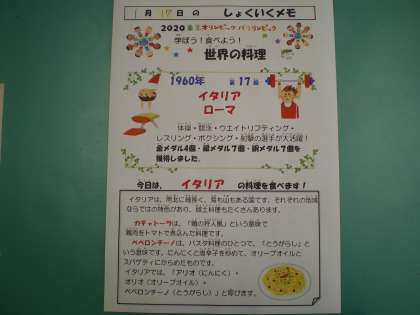 1月17日の しょくいくメモ
2020東京オリンピック パラリンピック
学ぼう！食べよう！
世界の料理
1960年 第17回
イタリア
ローマ
体操・競泳・ウエイトリフティング・
レスリング・ボクシング・射撃の選手が大活躍！
金メダル4個・銀メダル7個・銅メダル7個を
獲得しました。
今日は、 イタリア の料理を食べます！
イタリアは、南北に細長く、海も山もある国です。それぞれの地域
ならではの特色があり、郷土料理もたくさんあります。
カチャトーラは、「鶏の狩人風」という意味で
鶏肉をトマトで煮込んだ料理です。
ペペロンチーノは、パスタ料理のひとつで、「とうがらし」とい
う意味です。にんにくと唐辛子を炒めて、オリーブオイルと
スパゲティにからめたものです。
イタリアでは、「アリオ（にんにく）・
オリオ（オリーブオイル）・
ペペロンチーノ（とうがらし）」と呼びます。